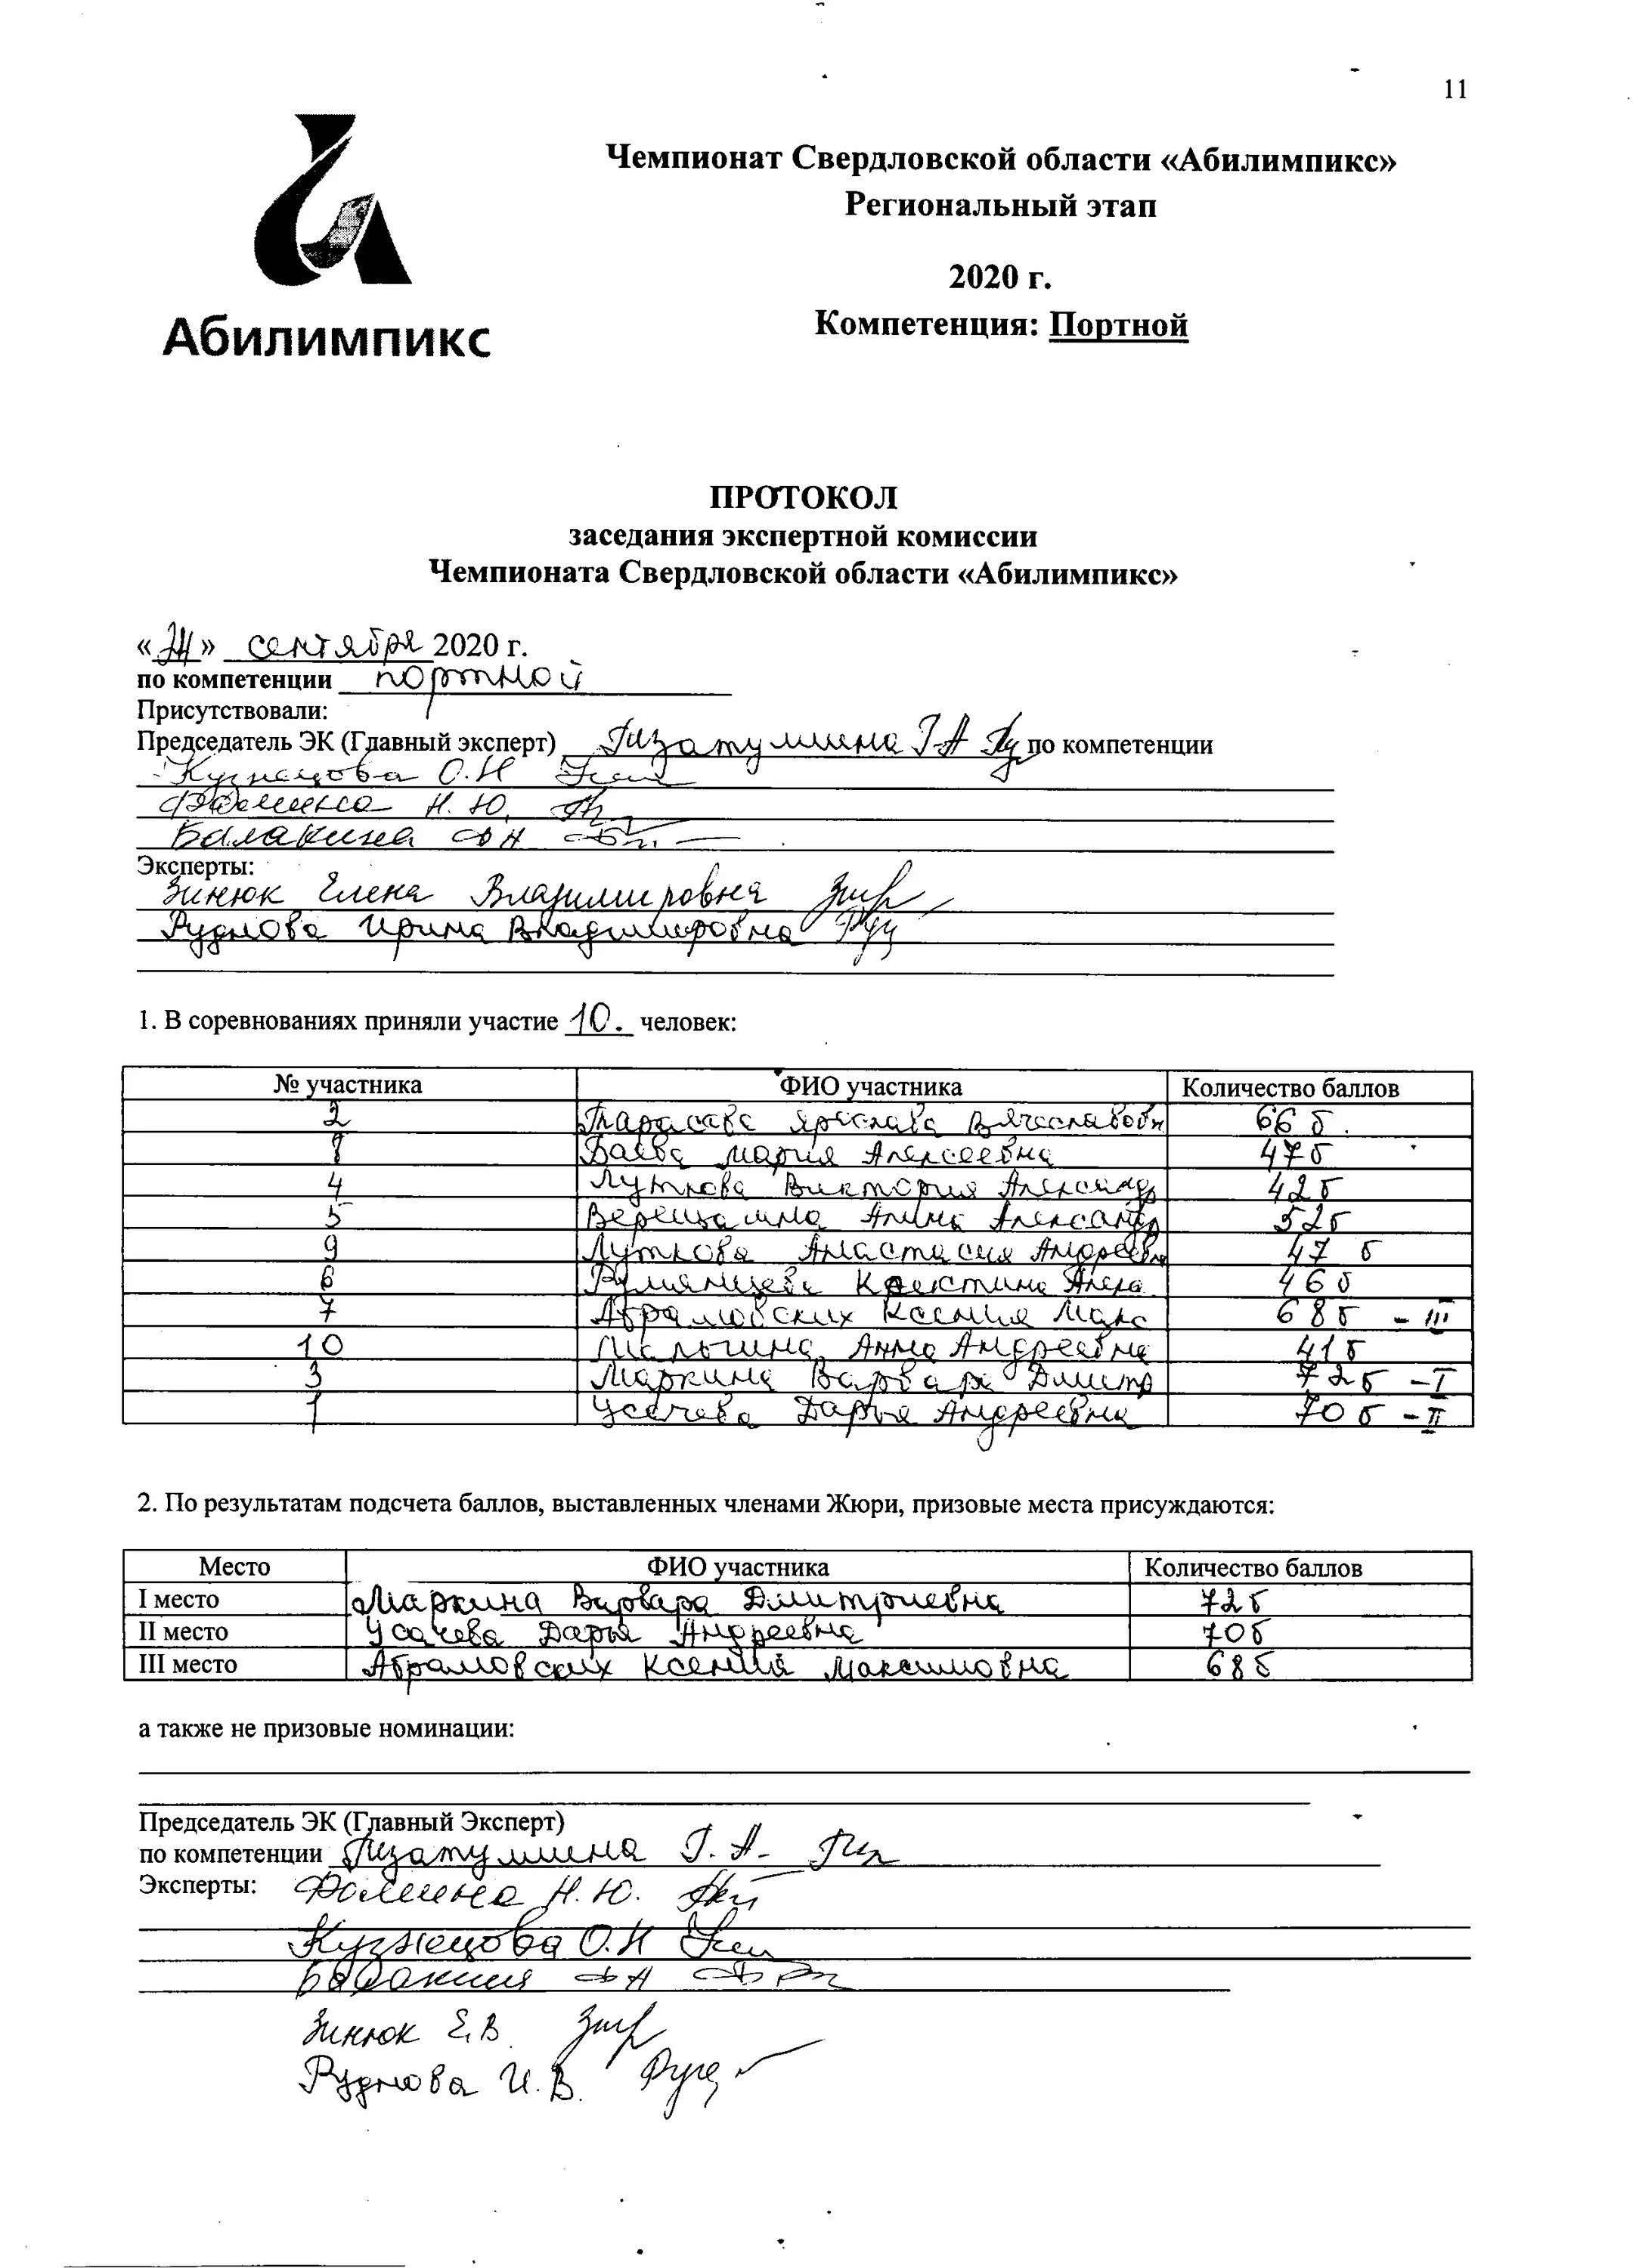 11
Чемпионат Свердловской области «Абилимпикс»
Региональный этап
2020 г.
Компетенция: Портной
Абилимпикс
ПРОТОКОЛ
заседания экспертной комиссии
Чемпионата Свердловской области «Абилимпикс»
« » сентября 2020 г.
по компетенции портной
Присутствовали:
Председатель ЭК (Главный эксперт) Гизатуллина Г.А по компетенции
Кузнецова О.Н
Фомина Н.Ю.
Балакина ФН
Эксперты:
Зинюк Елена Владимировна
Руднова Ирина Владимировна
1. В соревнованиях приняли участие 10. человек:
№ участника ФИО участника Количество баллов
2 Тарасова Ярослава Вячеславовн 66 б.
8 Баева Мария Алексеевна 47б
4 Луткова Виктория Александр 42б
5 Верещагина Алина Александр 52б
9 Луткова Анастасия Андреевн 47 б
6 Румянцева Кристина Алекс 46б
7 Абрамовских Ксения Макс 68б - III
10 Малыгина Анна Андреевна 41б
3 Маркина Варвара Дмитр 72б - I
1 Усачева Дарья Андреевна 70 б - II
2. По результатам подсчета баллов, выставленных членами Жюри, призовые места присуждаются:
Место ФИО участника Количество баллов
I место Маркина Варвара Дмитриевна 72б
II место Усачева Дарья Андреевна 70б
III место Абрамовских Ксения Максимовна 68б
а также не призовые номинации:
Председатель ЭК (Главный Эксперт)
по компетенции Гизатуллина Г.А.
Эксперты: Фомина Н.Ю.
Кузнецова О.Н
Балакина ФН
Зинюк Е.В.
Руднова И.В.